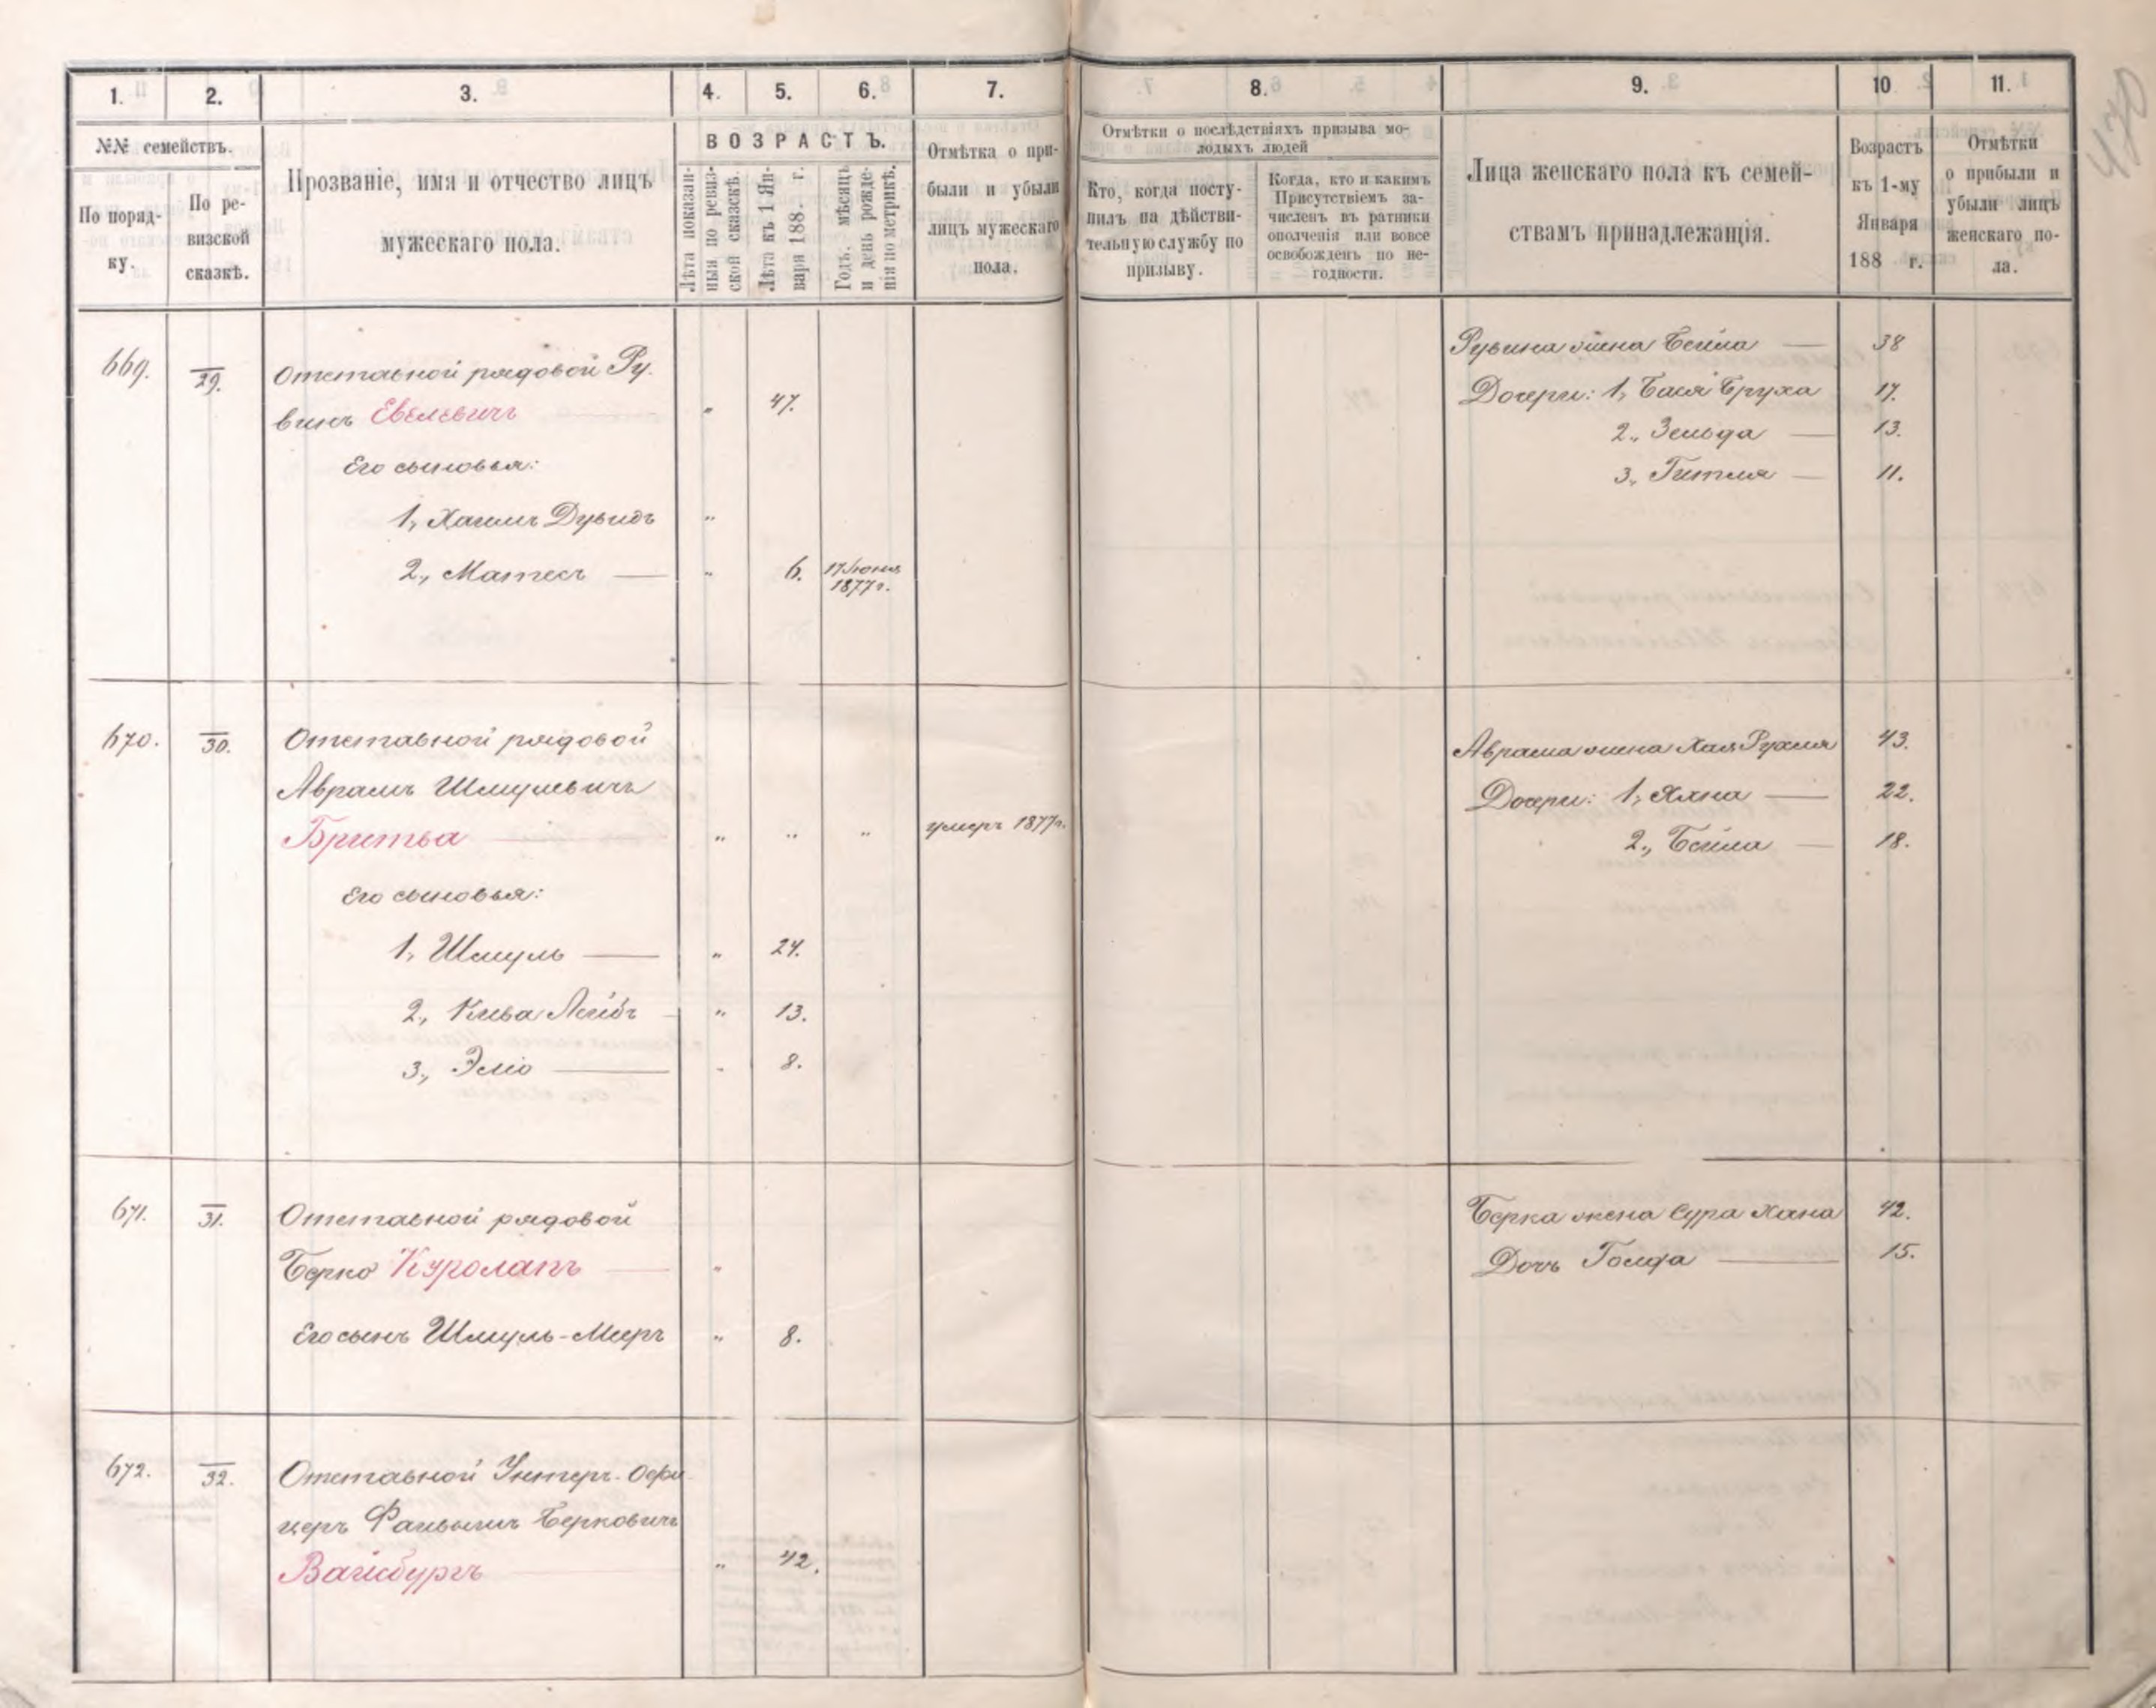 1.
2.
3.
4.
5.
6.
7.
8.
9.
10
11.
470
№№ семействъ.
По поряд-
ку.
По ре-
визской
сказкѣ.
Прозваніе, имя и отчество лицъ
мужескаго пола.
ВОЗРАСТЪ.
Лѣта показан-
ныя по ревиз-
ской сказкѣ.
Лѣта къ 1 Ян-
варя 188 . г.
Годъ, мѣсяцъ
и день рожде-
нія по метрикѣ.
Отмѣтка о при-
были и убыли
лицъ мужескаго
пола.
Отмѣтки о послѣдствіяхъ призыва мо-
лодыхъ людей
Кто, когда посту-
пилъ на дѣйстви-
тельную службу по
призыву.
Когда, кто и какимъ
Присутствіемъ за-
численъ въ ратники
ополченія или вовсе
освобожденъ по не-
годности.
Лица женскаго пола къ семей-
ствамъ принадлежащія.
Возрастъ
къ 1-му
Января
188 г.
Отмѣтки
о прибыли и
убыли лицъ
женскаго по-
ла.
669. 29. Отставной рядовой Ру-
винъ Евелевичъ — „ 47.
Его сыновья:
1, Хаимъ Дувидъ „
2, Матесъ — „ 6. 17 Іюня
1877 г.
Рувина жена Бейла — 38
Дочери: 1, Бася Бруха 17.
2, Зельда — 13.
3, Гитля — 11.
670. 30. Отставной рядовой
Абрамъ Шмулевичъ
Бритва — „ „ „ умеръ 1877 г.
Его сыновья:
1, Шмуль — „ 24.
2, Кива Лейбъ - „ 13.
3, Эліо — „ 8.
Абрама жена Хая Рухля 43.
Дочери: 1, Хана — 22.
2, Бейла — 18.
671. 31. Отставной рядовой
Берко Куролапъ — „
Его сынъ Шмуль-Мееръ „ 8.
Берка жена Сура Хана 42.
Дочь Голда — 15.
672. 32. Отставной Унтеръ-Офи-
церъ Файвышъ Берковичъ
Вайсбургъ „ 42.